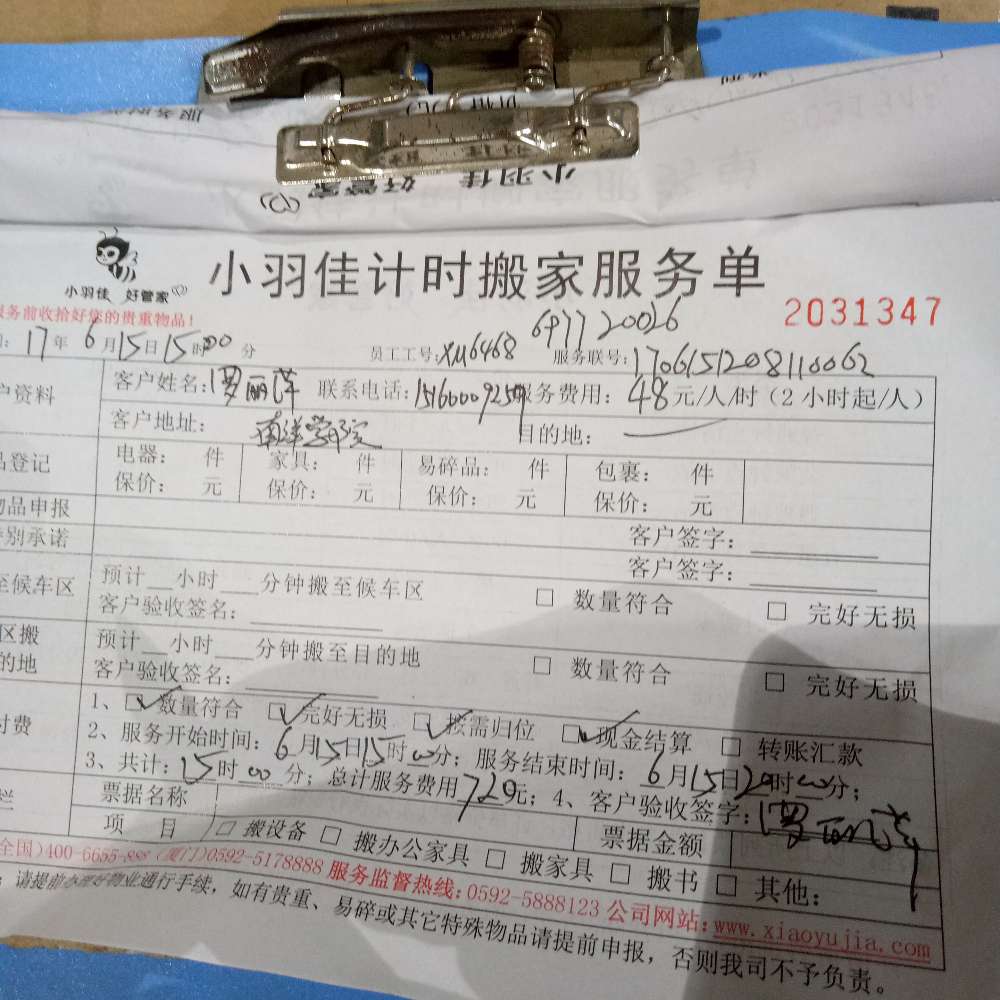 小羽佳 好管家
小羽佳计时搬家服务单
小羽佳 好管家
2031347
服务前收拾好您的贵重物品!
6977 20026
17年 6月15日15时00分 员工工号:XU6468 服务联号:1706151208110062
户资料 客户姓名:罗丽萍 联系电话: 服务费用:48元/人/时(2小时起/人)
客户地址:南洋学院 目的地:
品登记 电器: 件 家具: 件 易碎品: 件 包裹: 件
保价: 元 保价: 元 保价: 元 保价: 元
物品申报 客户签字:
特别承诺 客户签字:
至候车区 预计__小时__分钟搬至候车区 □ 数量符合 □ 完好无损
客户验收签名:
区搬 预计__小时__分钟搬至目的地 □ 数量符合 □ 完好无损
的地 客户验收签名:
付费 1、☑数量符合 ☑完好无损 ☑按需归位 ☑现金结算 □ 转账汇款
2、服务开始时间:6月15日15时00分;服务结束时间:6月15日20时00分;
3、共计:15时00分;总计服务费用720元;4、客户验收签字:罗丽萍
栏 票据名称 票据金额
项 目 □ 搬设备 □ 搬办公家具 □ 搬家具 □ 搬书 □ 其他:
全国)400-6655-888 (厦门)0592-5178888 服务监督热线:0592-5888123 公司网站:www.xiaoyujia.com
:请提前办理好物业通行手续,如有贵重、易碎或其它特殊物品请提前申报,否则我司不予负责。